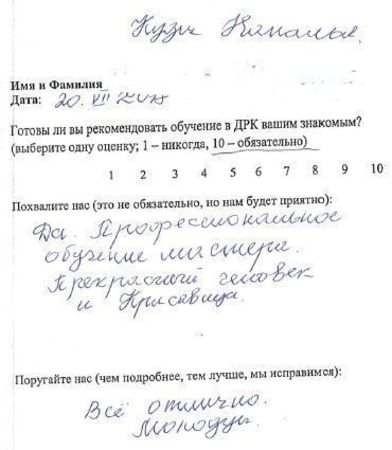 Имя и Фамилия
Дата: 20. VII
Готовы ли вы рекомендовать обучение в ДРК вашим знакомым?
(выберите одну оценку; 1 – никогда, 10 – обязательно)
1 2 3 4 5 6 7 8 9 10
Похвалите нас (это не обязательно, но нам будет приятно):
Да. Профессиональное
обучение мастера.
Прекрасный человек
и Красавица.
Поругайте нас (чем подробнее, тем лучше, мы исправимся):
Всё отлично.
Молодцы.